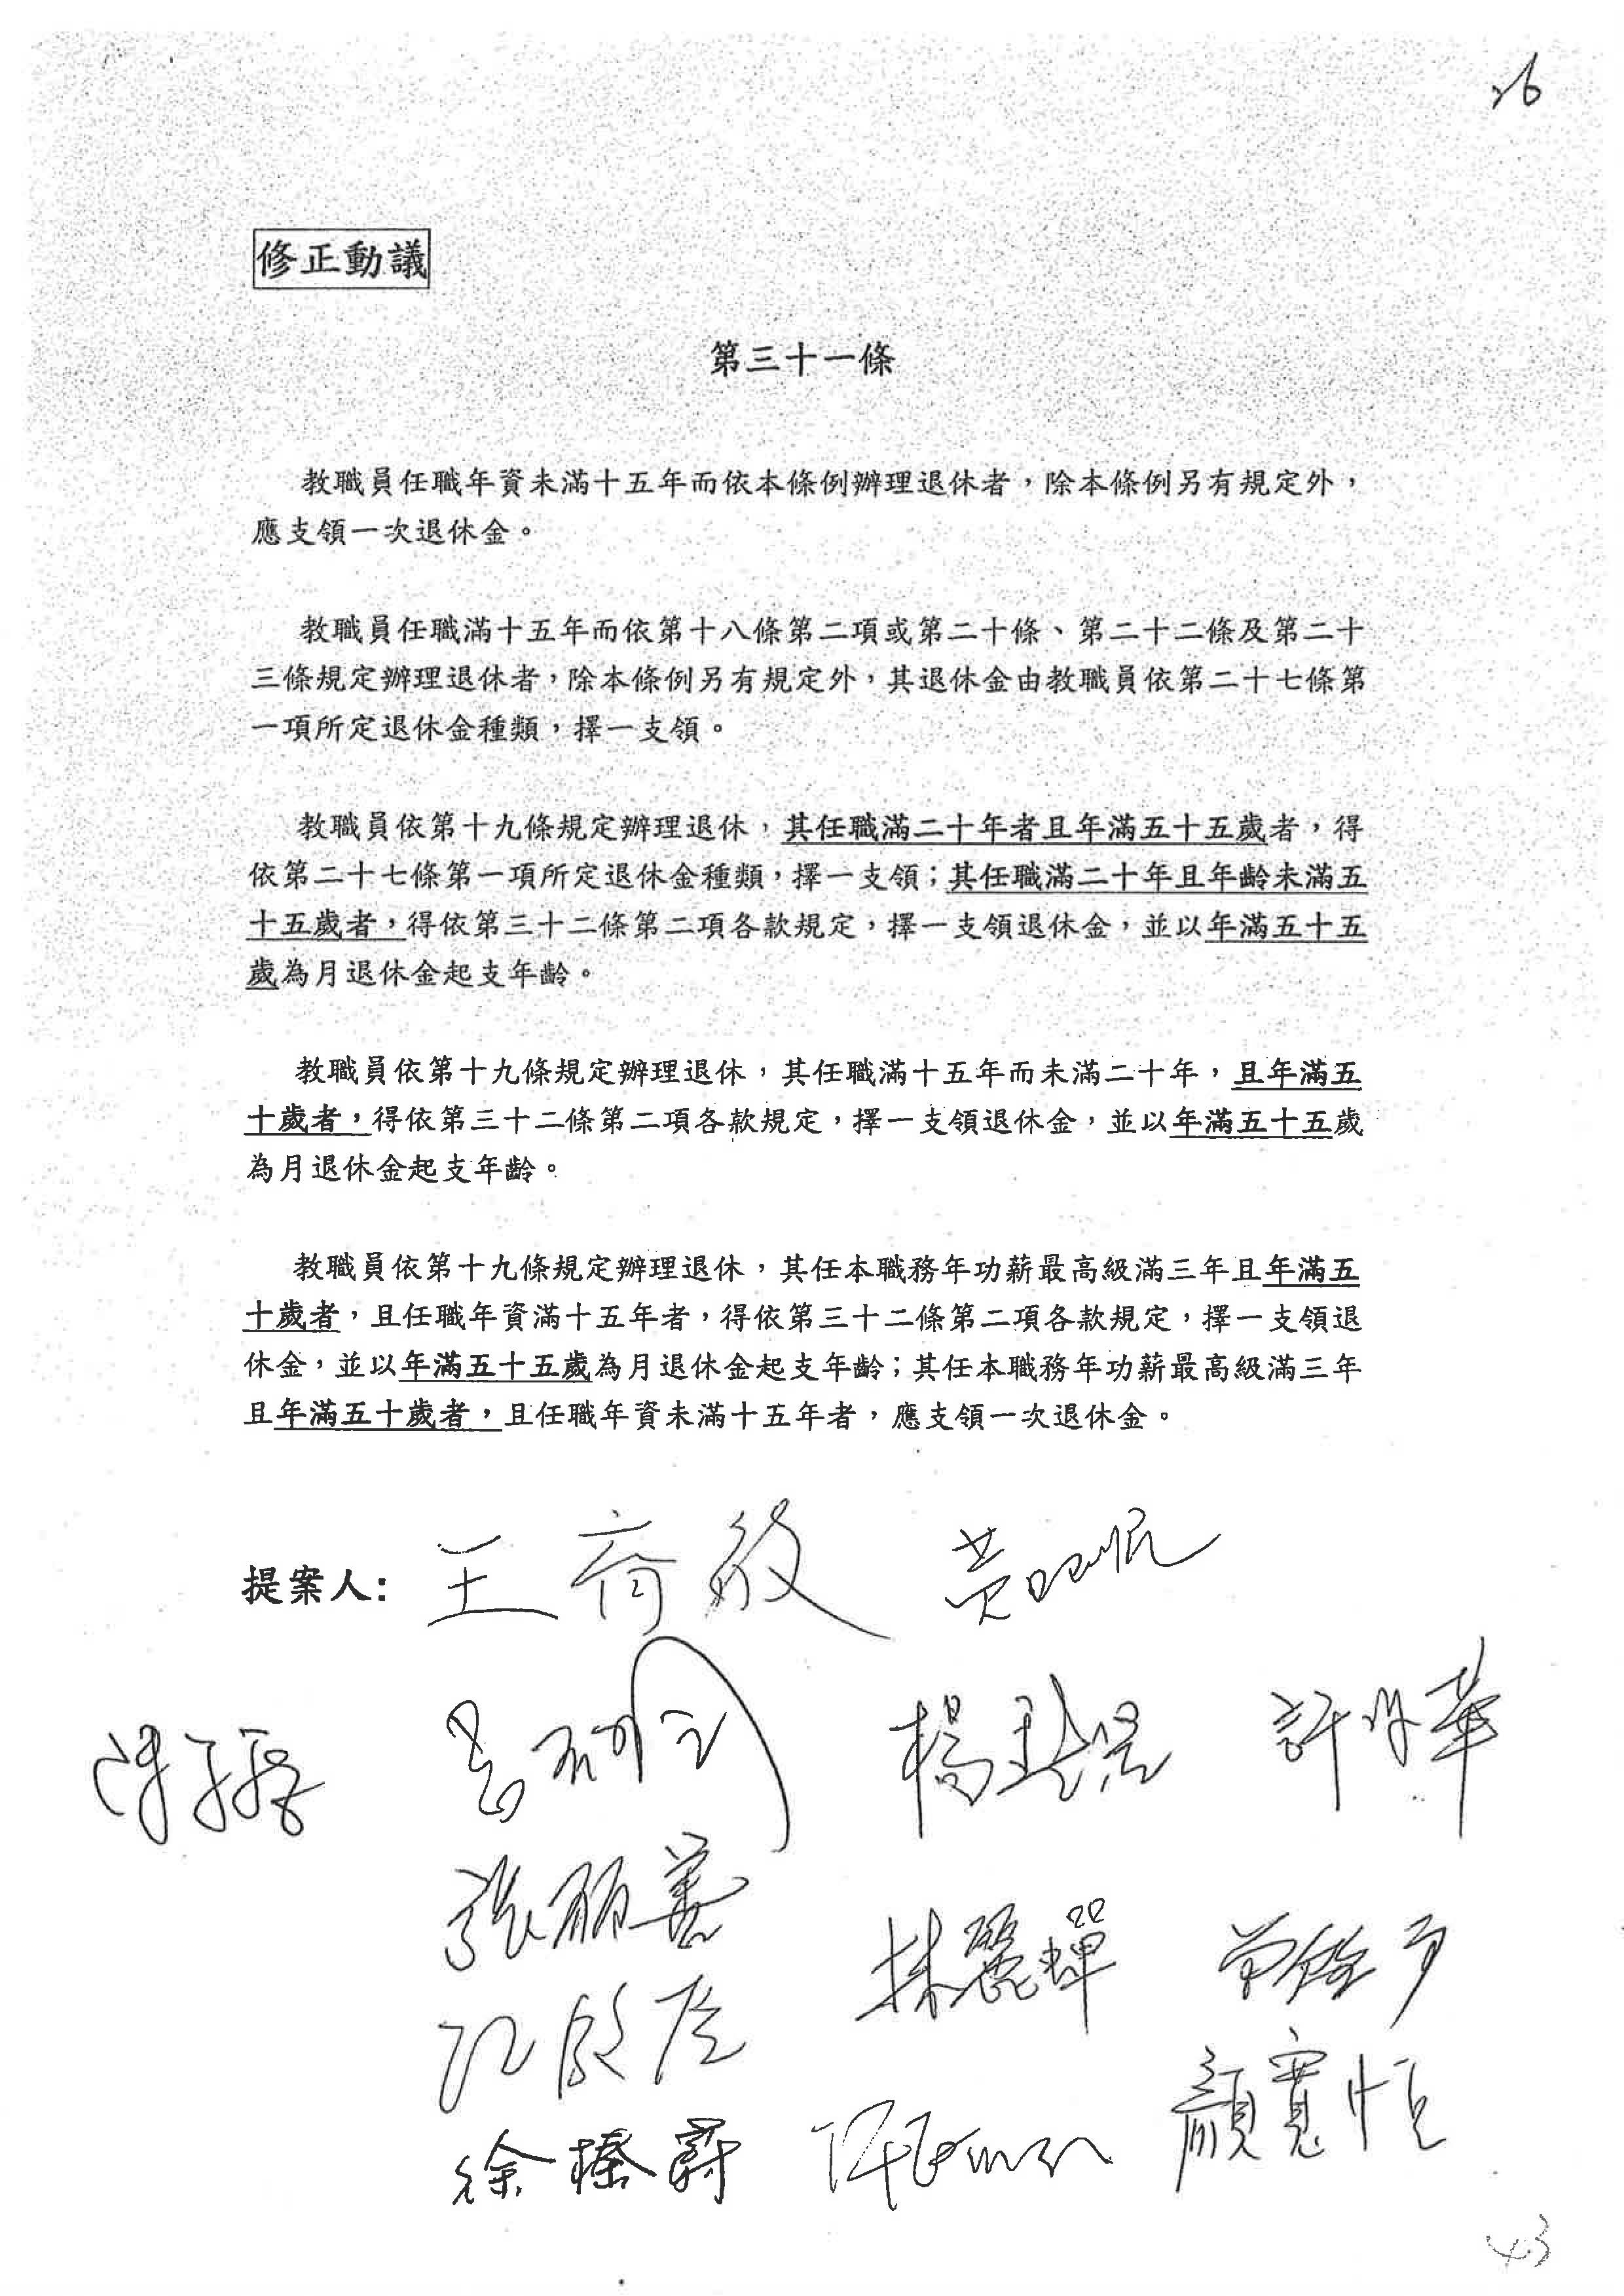 26
修正動議
第三十一條
教職員任職年資未滿十五年而依本條例辦理退休者，除本條例另有規定外，
應支領一次退休金。
教職員任職滿十五年而依第十八條第二項或第二十條、第二十二條及第二十
三條規定辦理退休者，除本條例另有規定外，其退休金由教職員依第二十七條第
一項所定退休金種類，擇一支領。
教職員依第十九條規定辦理退休，其任職滿二十年者且年滿五十五歲者，得
依第二十七條第一項所定退休金種類，擇一支領；其任職滿二十年且年齡未滿五
十五歲者，得依第三十二條第二項各款規定，擇一支領退休金，並以年滿五十五
歲為月退休金起支年齡。
教職員依第十九條規定辦理退休，其任職滿十五年而未滿二十年，且年滿五
十歲者，得依第三十二條第二項各款規定，擇一支領退休金，並以年滿五十五歲
為月退休金起支年齡。
教職員依第十九條規定辦理退休，其任本職務年功薪最高級滿三年且年滿五
十歲者，且任職年資滿十五年者，得依第三十二條第二項各款規定，擇一支領退
休金，並以年滿五十五歲為月退休金起支年齡；其任本職務年功薪最高級滿三年
且年滿五十歲者，且任職年資未滿十五年者，應支領一次退休金。
提案人: 王育敏 黃昭順
楊瓊瓔 許淑華
張麗善
林麗蟬 曾銘宗
江啟臣
顏寬恒
徐榛蔚
43